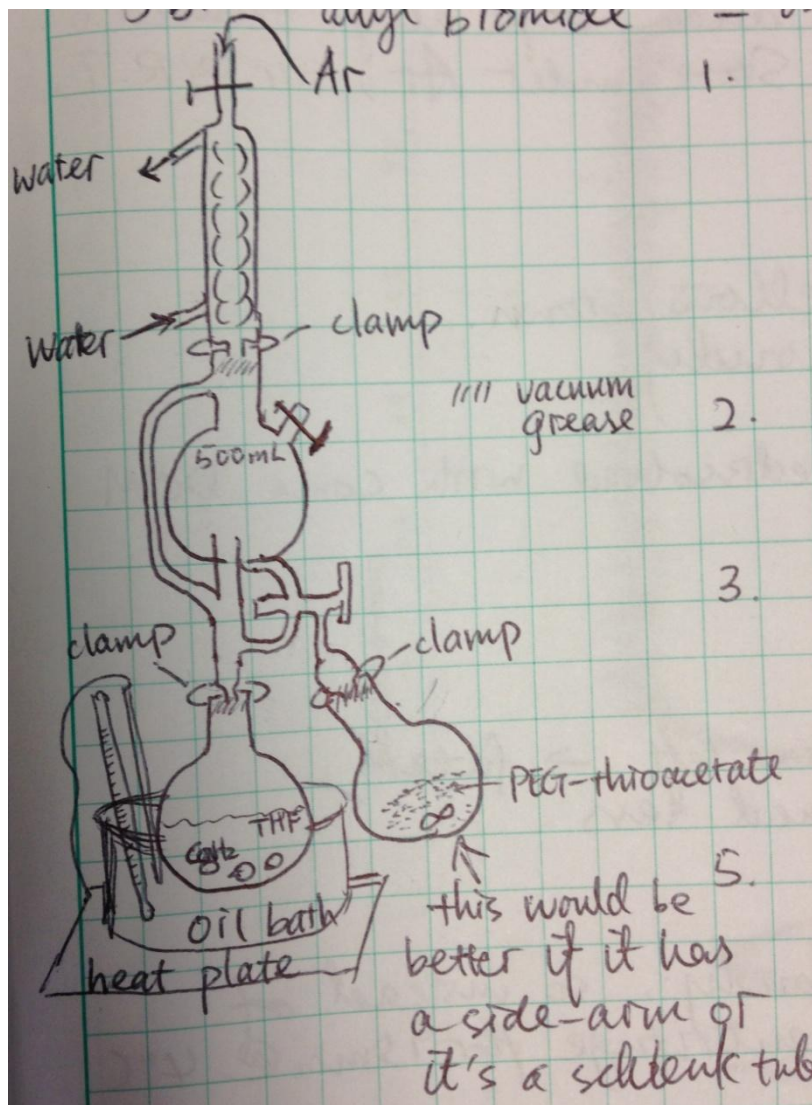 allyl bromide
Ar
1.
water
water
clamp
//// vacuum
grease
2.
500mL
3.
clamp
clamp
PEG-thioacetate
THF
CaH2
5.
oil bath
heat plate
this would be
better if it has
a side-arm or
it's a schlenk tub